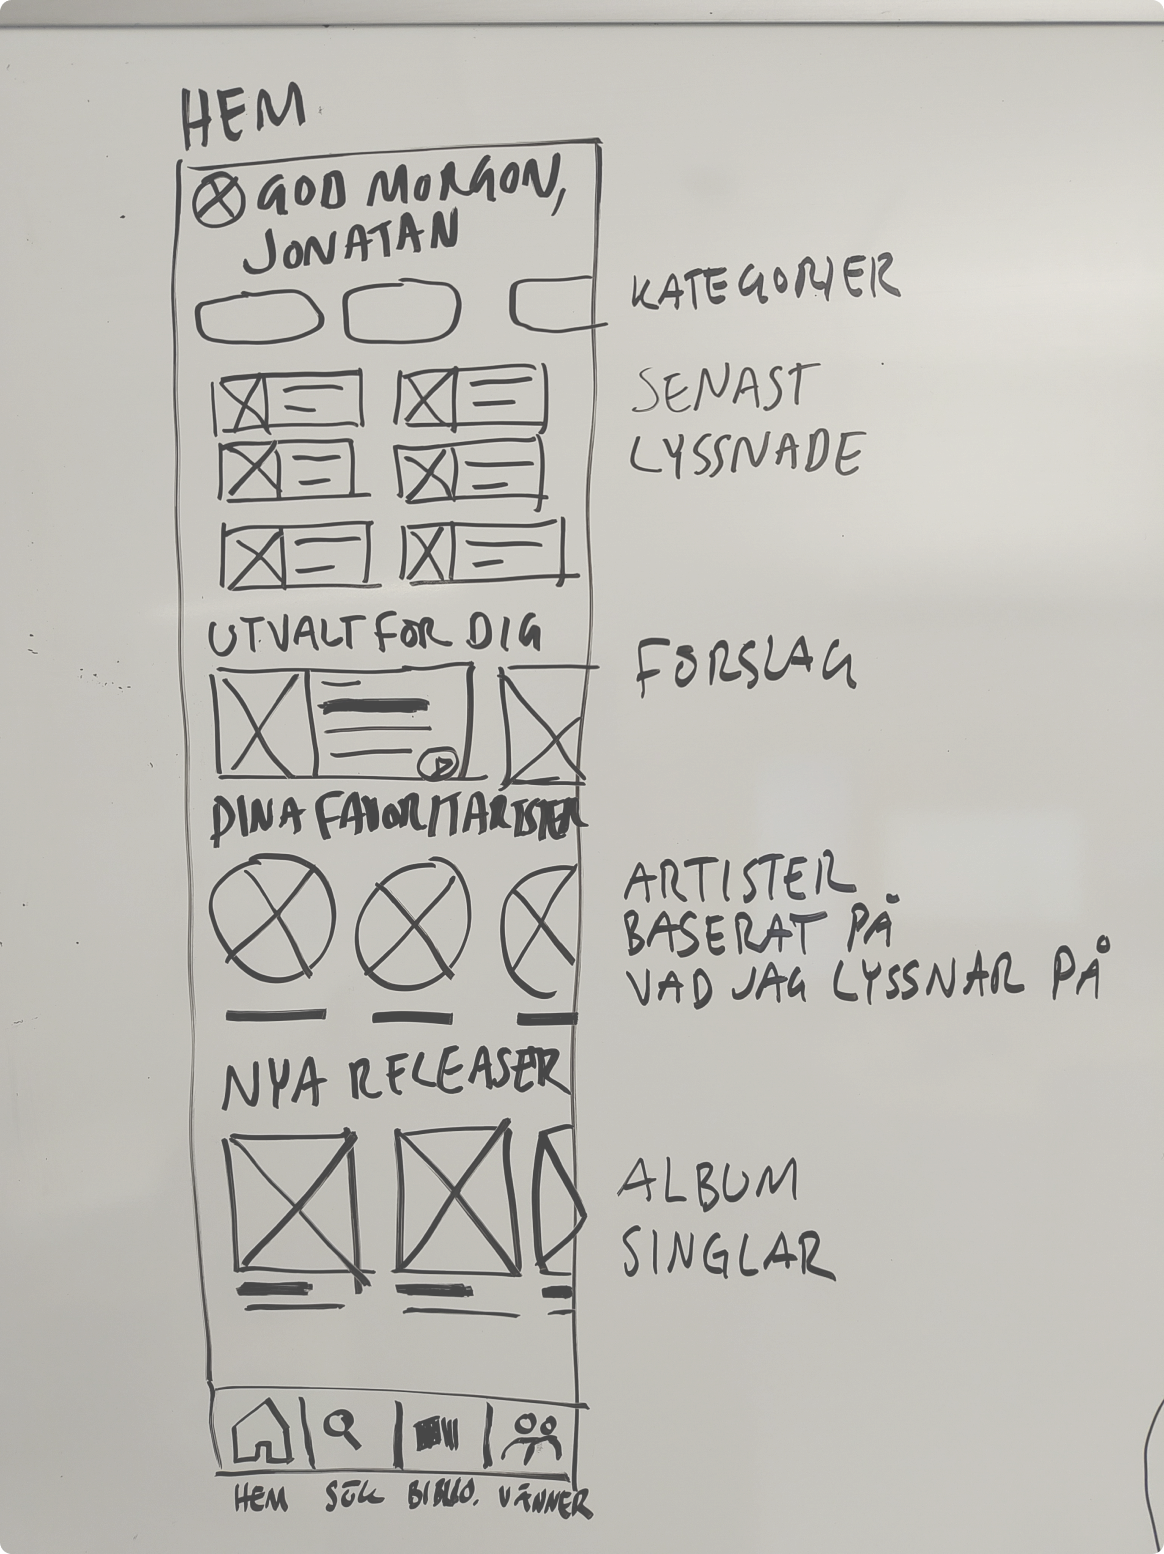 HEM
GOD MORGON,
JONATAN
KATEGORIER
SENAST
LYSSNADE
UTVALT FOR DIG
FORSLAG
DINA FAVORITARTISTER
ARTISTER
BASERAT PÅ
VAD JAG LYSSNAR PÅ
NYA RELEASER
ALBUM
SINGLAR
HEM SÖK BIBLIO. VÄNNER